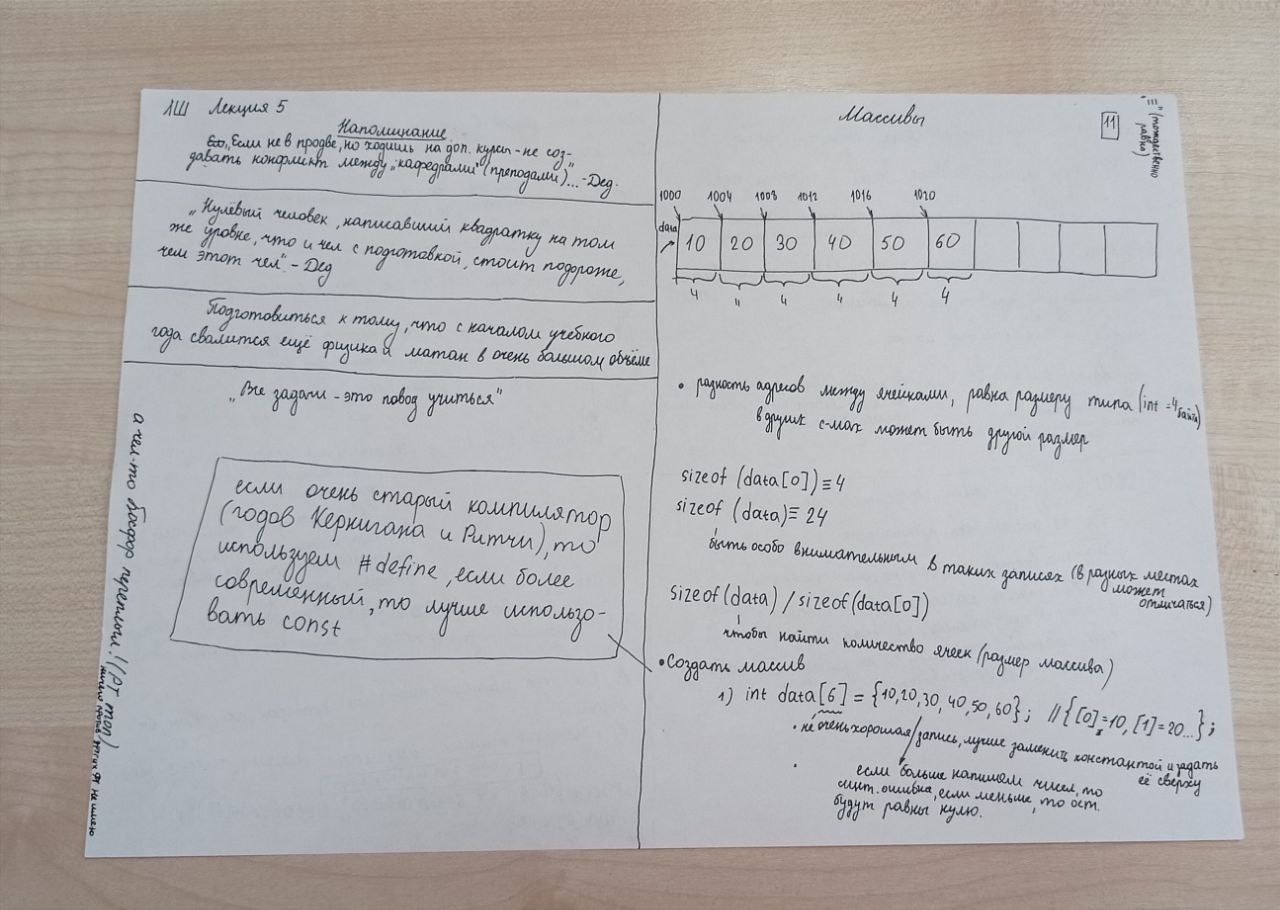 1Ш Лекция 5
Напоминание
„Если не в продве, но ходишь на доп. курсы - не соз-
давать конфликт между „кафедрами" (преподами)..." - Дед.
„Нулевый человек, написавший квадратку на том
же уровне, что и чел с подготовкой, стоит подороже,
чем этот чел" - Дед
Подготовиться к тому, что с началом учебного
года свалится ещё физика и матан в очень большом объёме
„Все задачи - это повод учиться"
если очень старый компилятор
(годов Кернигана и Ритчи), то
используем #define, если более
современный, то лучше использо-
вать const
а чем-то
! (РТ топ)
Массивы
11
"≡" (тождественно
равно)
1000 1004 1008 1012 1016 1020
data
10 20 30 40 50 60
4 4 4 4 4 4
• разность адресов между ячейками, равна размеру типа (int = 4 байта)
в других с-мах может быть другой размер
sizeof (data[0]) ≡ 4
sizeof (data) ≡ 24
быть особо внимательным в таких записях (в разных местах
может
отличаться)
sizeof(data) / sizeof(data[0])
чтобы найти количество ячеек (размер массива)
• Создать массив
1) int data[6] = {10,20,30,40,50,60}; // {[0]=10, [1]=20...};
• не очень хорошая запись, лучше заменить константой и задать
её сверху
если больше напишем чисел, то
синт. ошибка, если меньше, то ост.
будут равны нулю.